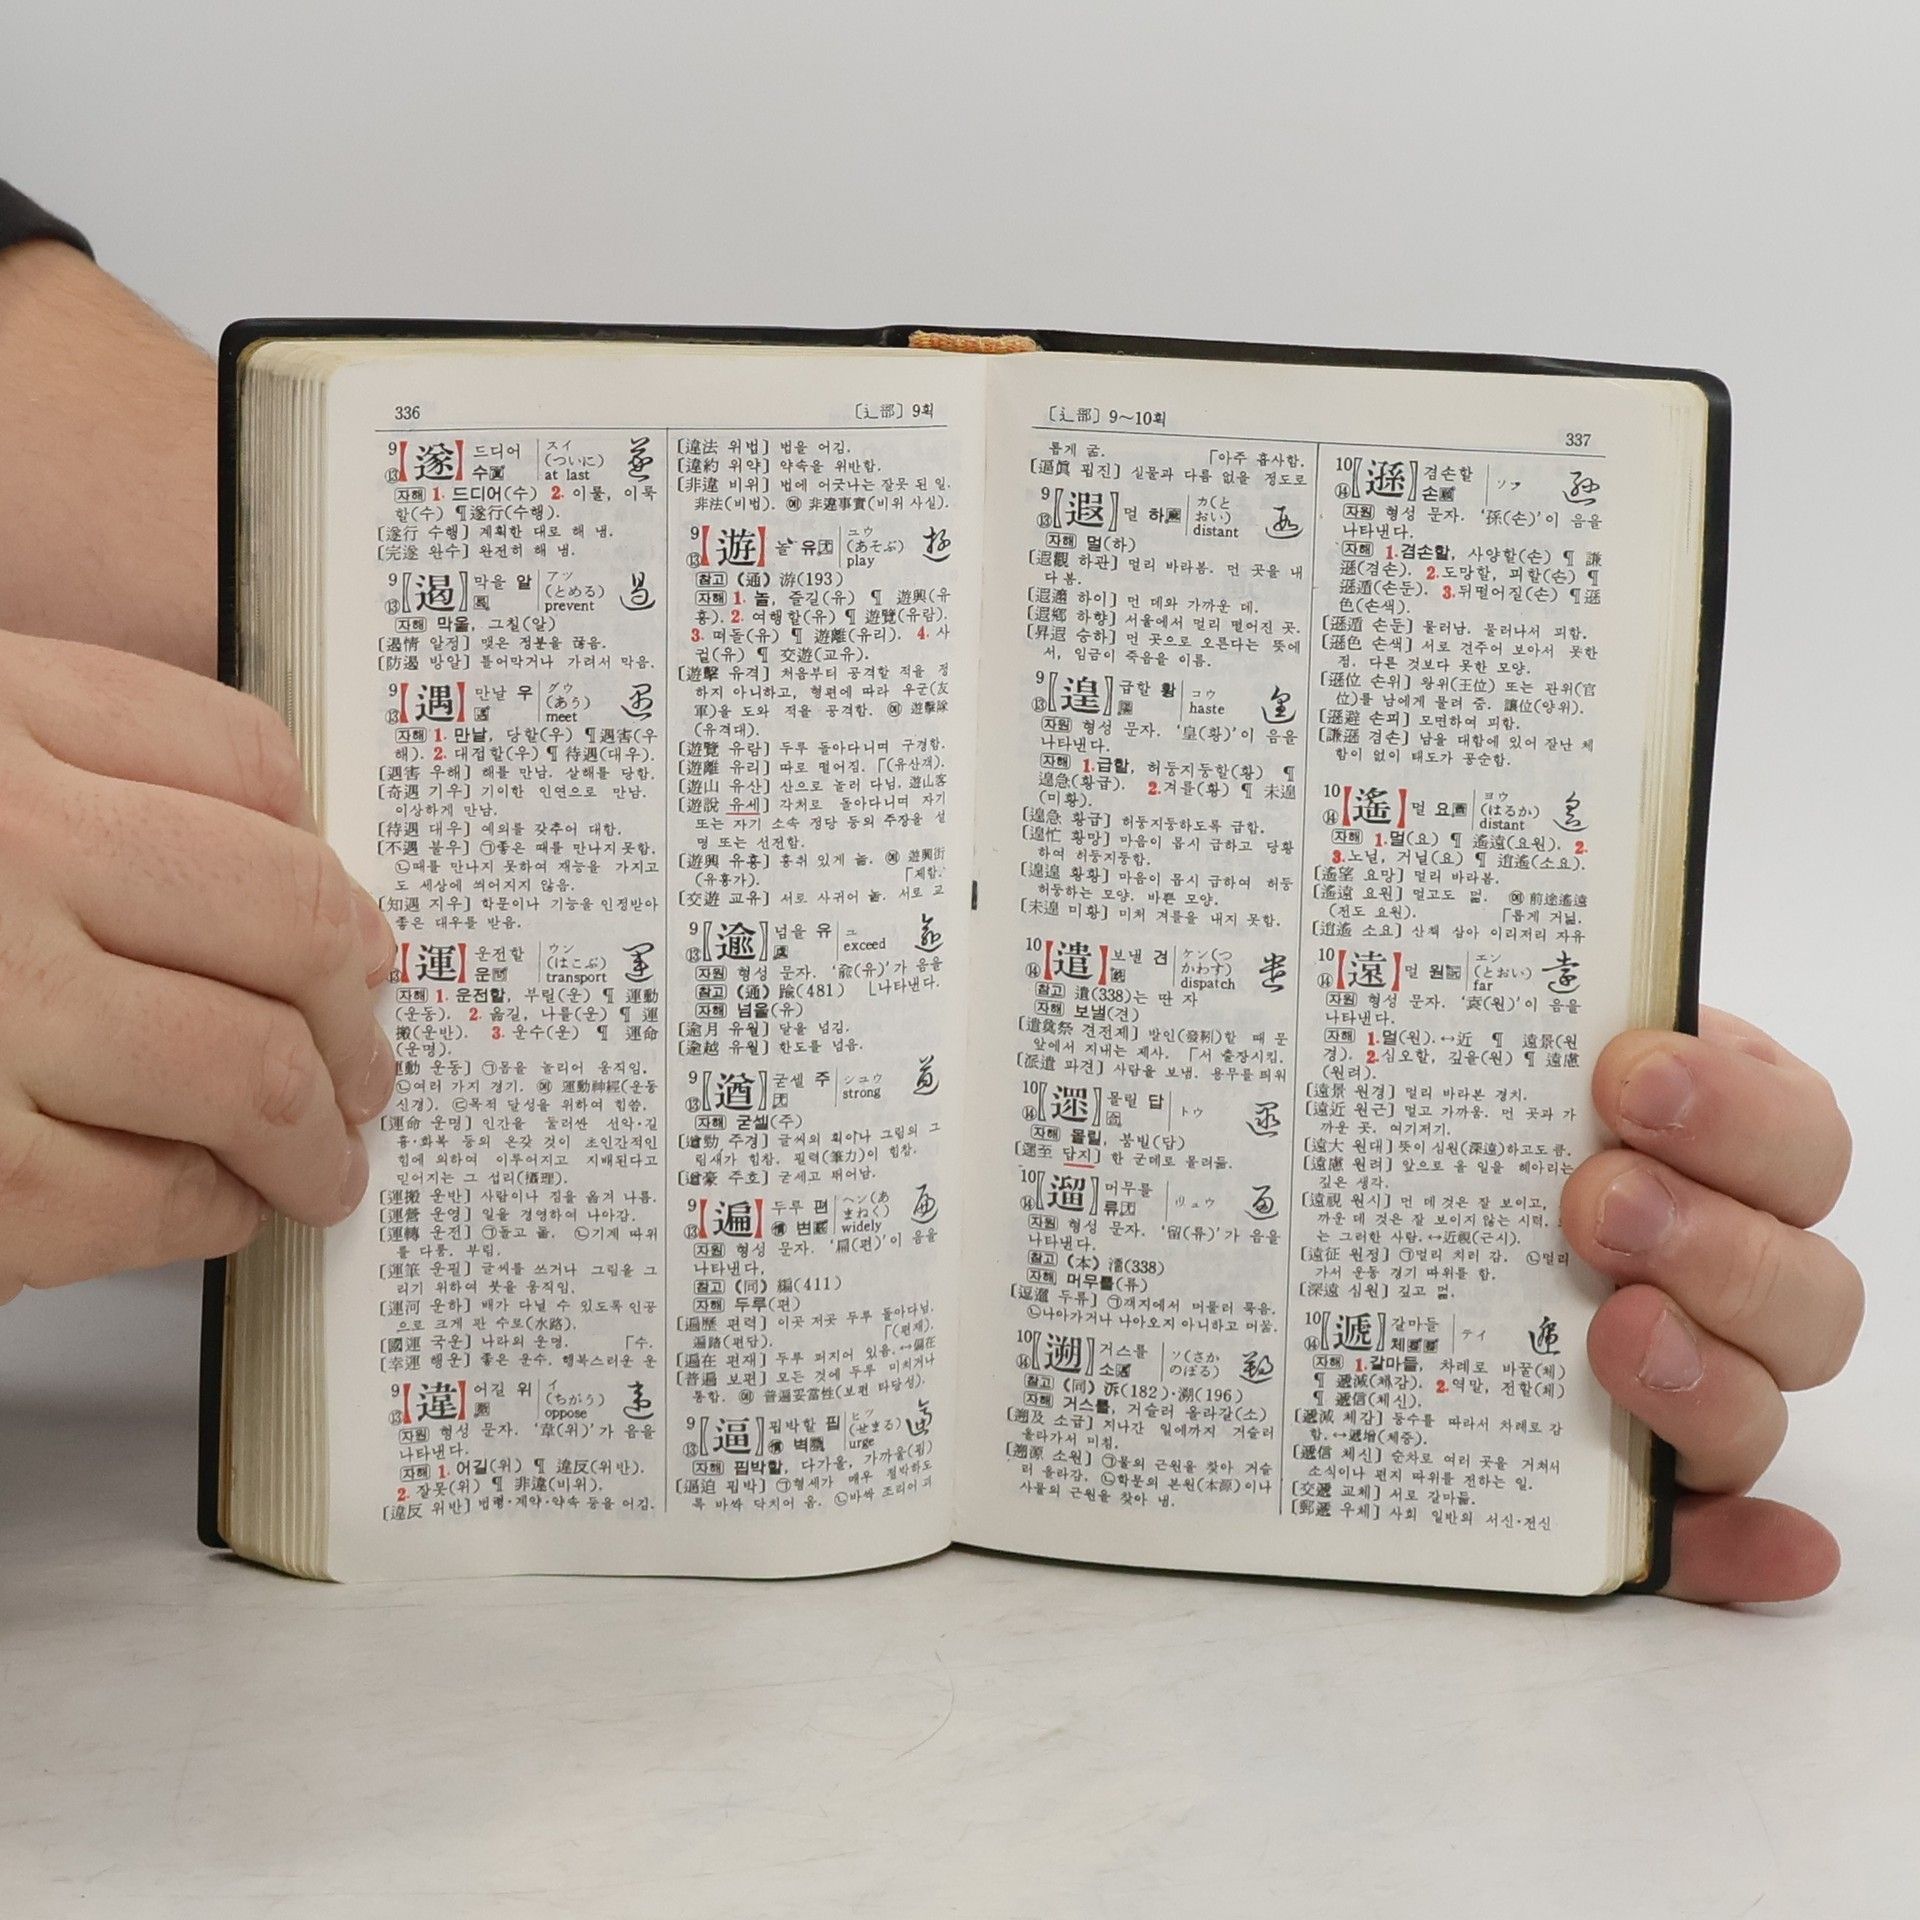 336
〔辶部〕 9획
9 ⑬ 【遂】 드디어 수 スイ (ついに) at last
자해 1. 드디어(수) 2. 이룰, 이룩
할(수) ¶遂行(수행).
[遂行 수행] 계획한 대로 해 냄.
[完遂 완수] 완전히 해 냄.
9 ⑬ 〖遏〗 막을 알 アツ (とめる) prevent
자해 막을, 그칠(알)
[遏情 알정] 맺은 정분을 끊음.
[防遏 방알] 틀어막거나 가려서 막음.
9 ⑬ 【遇】 만날 우 グウ (あう) meet
자해 1. 만날, 당할(우) ¶遇害(우
해). 2. 대접할(우) ¶待遇(대우).
[遇害 우해] 해를 만남. 살해를 당함.
[奇遇 기우] 기이한 인연으로 만남.
이상하게 만남.
[待遇 대우] 예의를 갖추어 대함.
[不遇 불우] ㉠좋은 때를 만나지못함.
㉡때를 만나지 못하여 재능을 가지고
도 세상에 씌어지지 않음.
[知遇 지우] 학문이나 기능을 인정받아
좋은 대우를 받음.
⑬ 【運】 운전할 운 ウン (はこぶ) transport
자해 1. 운전할, 부릴(운) ¶ 運動
(운동). 2. 옮길, 나를(운) ¶ 運
搬(운반). 3. 운수(운) ¶ 運命
(운명).
運動 운동] ㉠몸을 놀리어 움직임.
㉡여러 가지 경기. 예 運動神經(운동
신경). ㉢목적 달성을 위하여 힘씀.
[運命 운명] 인간을 둘러싼 선악·길
흉·화복 등의 온갖 것이 초인간적인
힘에 의하여 이루어지고 지배된다고
믿어지는 그 섭리(攝理).
[運搬 운반] 사람이나 짐을 옮겨 나름.
[運營 운영] 일을 경영하여 나아감.
[運轉 운전] ㉠돌고 돎. ㉡기계 따위
를 다룸. 부림.
[運筆 운필] 글씨를 쓰거나 그림을 그
리기 위하여 붓을 움직임.
[運河 운하] 배가 다닐 수 있도록 인공
으로 크게 판 수로(水路).
[國運 국운] 나라의 운명. 「수.
[幸運 행운] 좋은 운수. 행복스러운 운
9 ⑬ 【違】 어길 위 イ (ちがう) oppose
자원 형성 문자. ‘韋(위)’가 음을
나타낸다.
자해 1. 어길(위) ¶ 違反(위반).
2. 잘못(위) ¶ 非違(비위).
[違反 위반] 법령·계약·약속 등을 어김.
[違法 위법] 법을 어김.
[違約 위약] 약속을 위반함.
[非違 비위] 법에 어긋나는 잘못 된 일.
非法(비법). 예 非違事實(비위 사실).
9 ⑬ 【遊】 놀 유 ユウ (あそぶ) play
참고 (通) 游(193)
자해 1. 놀, 즐길(유) ¶ 遊興(유
흥). 2. 여행할(유) ¶ 遊覽(유람).
3. 떠돌(유) ¶ 遊離(유리). 4. 사
귈(유) ¶ 交遊(교유).
[遊擊 유격] 처음부터 공격할 적을 정
하지 아니하고, 형편에 따라 우군(友
軍)을 도와 적을 공격함. 예 遊擊隊
(유격대).
[遊覽 유람] 두루 돌아다니며 구경함.
[遊離 유리] 따로 떨어짐. 「(유산객).
[遊山 유산] 산으로 놀러 다님. 遊山客
[遊說 유세] 각처로 돌아다니며 자기
또는 자기 소속 정당 등의 주장을 설
명 또는 선전함.
[遊興 유흥] 흥취 있게 놂. 예 遊興街
(유흥가). 「제함.
[交遊 교유] 서로 사귀어 놂. 서로 교
9 ⑬ 〖逾〗 넘을 유 ユ exceed
자원 형성 문자. ‘兪(유)’가 음을
참고 (通) 踰(481) └나타낸다.
자해 넘을(유)
[逾月 유월] 달을 넘김.
[逾越 유월] 한도를 넘음.
9 ⑬ 〖遒〗 굳셀 주 シュウ strong
자해 굳셀(주)
[遒勁 주경] 글씨의 획이나 그림의 그
림새가 힘참. 필력(筆力)이 힘참.
[遒豪 주호] 굳세고 뛰어남.
9 ⑬ 【遍】 두루 편 ヘン(あまねく) 변 widely
자원 형성 문자. ‘扁(편)’이 음을
나타낸다.
참고 (同) 徧(411)
자해 두루(편)
[遍歷 편력] 이곳 저곳 두루 돌아다님.
遍踏(편답). 「(편재).
[遍在 편재] 두루 퍼지어 있음.↔偏在
[普遍 보편] 모든 것에 두루 미치거나
통함. 예 普遍妥當性(보편 타당성).
9 ⑬ 〖逼〗 핍박할 핍 ヒツ (せまる) 벽 urge
자해 핍박할, 다가올, 가까울(핍)
[逼迫 핍박] ㉠형세가 매우 절박하도
록 바싹 닥치어 옴. ㉡바싹 조리어 괴
〔辶部〕 9～10획
337
롭게 굶. 「아주 흡사함.
[逼眞 핍진] 실물과 다름 없을 정도로
9 ⑬ 〖遐〗 멀 하 カ(とおい) distant
자해 멀(하)
[遐觀 하관] 멀리 바라봄. 먼 곳을 내
다 봄.
[遐邇 하이] 먼 데와 가까운 데.
[遐鄕 하향] 서울에서 멀리 떨어진 곳.
[昇遐 승하] 먼 곳으로 오른다는 뜻에
서, 임금이 죽음을 이름.
9 ⑬ 〖遑〗 급할 황 コウ haste
자원 형성 문자. ‘皇(황)’이 음을
나타낸다.
자해 1.급할, 허둥지둥할(황) ¶
遑急(황급). 2.겨를(황) ¶ 未遑
(미황).
[遑急 황급] 허둥지둥하도록 급함.
[遑忙 황망] 마음이 몹시 급하고 당황
하여 허둥지둥함.
[遑遑 황황] 마음이 몹시 급하여 허둥
허둥하는 모양. 바쁜 모양.
[未遑 미황] 미처 겨를을 내지 못함.
10 ⑭ 【遣】 보낼 견 ケン(つかわす) dispatch
참고 遺(338)는 딴 자
자해 보낼(견)
[遣奠祭 견전제] 발인(發靷)할 때 문
앞에서 지내는 제사. 「서 출장시킴.
[派遣 파견] 사람을 보냄. 용무를 띄워
10 ⑭ 〖遝〗 몰릴 답 トウ
자해 몰릴, 붐빌(답)
[遝至 답지] 한 군데로 몰려듦.
10 ⑭ 〖遛〗 머무를 류 リュウ
자원 형성 문자. ‘留(류)’가 음을
나타낸다.
참고 (本) 遛(338)
자해 머무를(류)
[逗遛 두류] ㉠객지에서 머물러 묵음.
㉡나아가거나 나아오지 아니하고 머묾.
10 ⑭ 〖遡〗 거스를 소 ソ(さかのぼる)
참고 (同) 泝(182)·溯(196)
자해 거스를, 거슬러 올라갈(소)
[遡及 소급] 지나간 일에까지 거슬러
올라가서 미침.
[遡源 소원] ㉠물의 근원을 찾아 거슬
러 올라감. ㉡학문의 본원(本源)이나
사물의 근원을 찾아 냄.
10 ⑭ 〖遜〗 겸손할 손 ソフ
자원 형성 문자. ‘孫(손)’이 음을
나타낸다.
자해 1.겸손할, 사양할(손) ¶ 謙
遜(겸손). 2.도망할, 피할(손) ¶
遜遁(손둔). 3.뒤떨어질(손) ¶遜
色(손색).
[遜遁 손둔] 물러남. 물러나서 피함.
[遜色 손색] 서로 견주어 보아서 못한
점. 다른 것보다 못한 모양.
[遜位 손위] 왕위(王位) 또는 관위(官
位)를 남에게 물려 줌. 讓位(양위).
[遜避 손피] 모면하여 피함.
[謙遜 겸손] 남을 대함에 있어 잘난 체
함이 없이 태도가 공순함.
10 ⑭ 【遙】 멀 요 ヨウ (はるか) distant
자해 1.멀(요) ¶ 遙遠(요원). 2.
3.노닐, 거닐(요) ¶ 逍遙(소요).
[遙望 요망] 멀리 바라봄.
[遙遠 요원] 멀고도 멂. 예 前途遙遠
(전도 요원). 「롭게 거닒.
[逍遙 소요] 산책 삼아 이리저리 자유
10 ⑭ 【遠】 멀 원 エン (とおい) far
자원 형성 문자. ‘袁(원)’이 음을
나타낸다.
자해 1.멀(원).↔近 ¶ 遠景(원
경). 2.심오할, 깊을(원) ¶ 遠慮
(원려).
[遠景 원경] 멀리 바라본 경치.
[遠近 원근] 멀고 가까움. 먼 곳과 가
까운 곳. 여기저기.
[遠大 원대] 뜻이 심원(深遠)하고도 큼.
[遠慮 원려] 앞으로 올 일을 헤아리는
깊은 생각.
[遠視 원시] 먼 데것은 잘 보이고,
까운 데 것은 잘 보이지 않는 시력.
는 그러한 사람.↔近視(근시).
[遠征 원정] ㉠멀리 치러 감. ㉡멀리
가서 운동 경기 따위를 함.
[深遠 심원] 깊고 멂.
10 ⑭ 〖遞〗 갈마들 체 テイ
자해 1.갈마들, 차례로 바꿀(체)
¶ 遞減(체감). 2.역말, 전할(체)
¶ 遞信(체신).
[遞減 체감] 등수를 따라서 차례로 감
함.↔遞增(체증).
[遞信 체신] 순차로 여러 곳을 거쳐서
소식이나 편지 따위를 전하는 일.
[交遞 교체] 서로 갈마듦.
[郵遞 우체] 사회 일반의 서신·전신